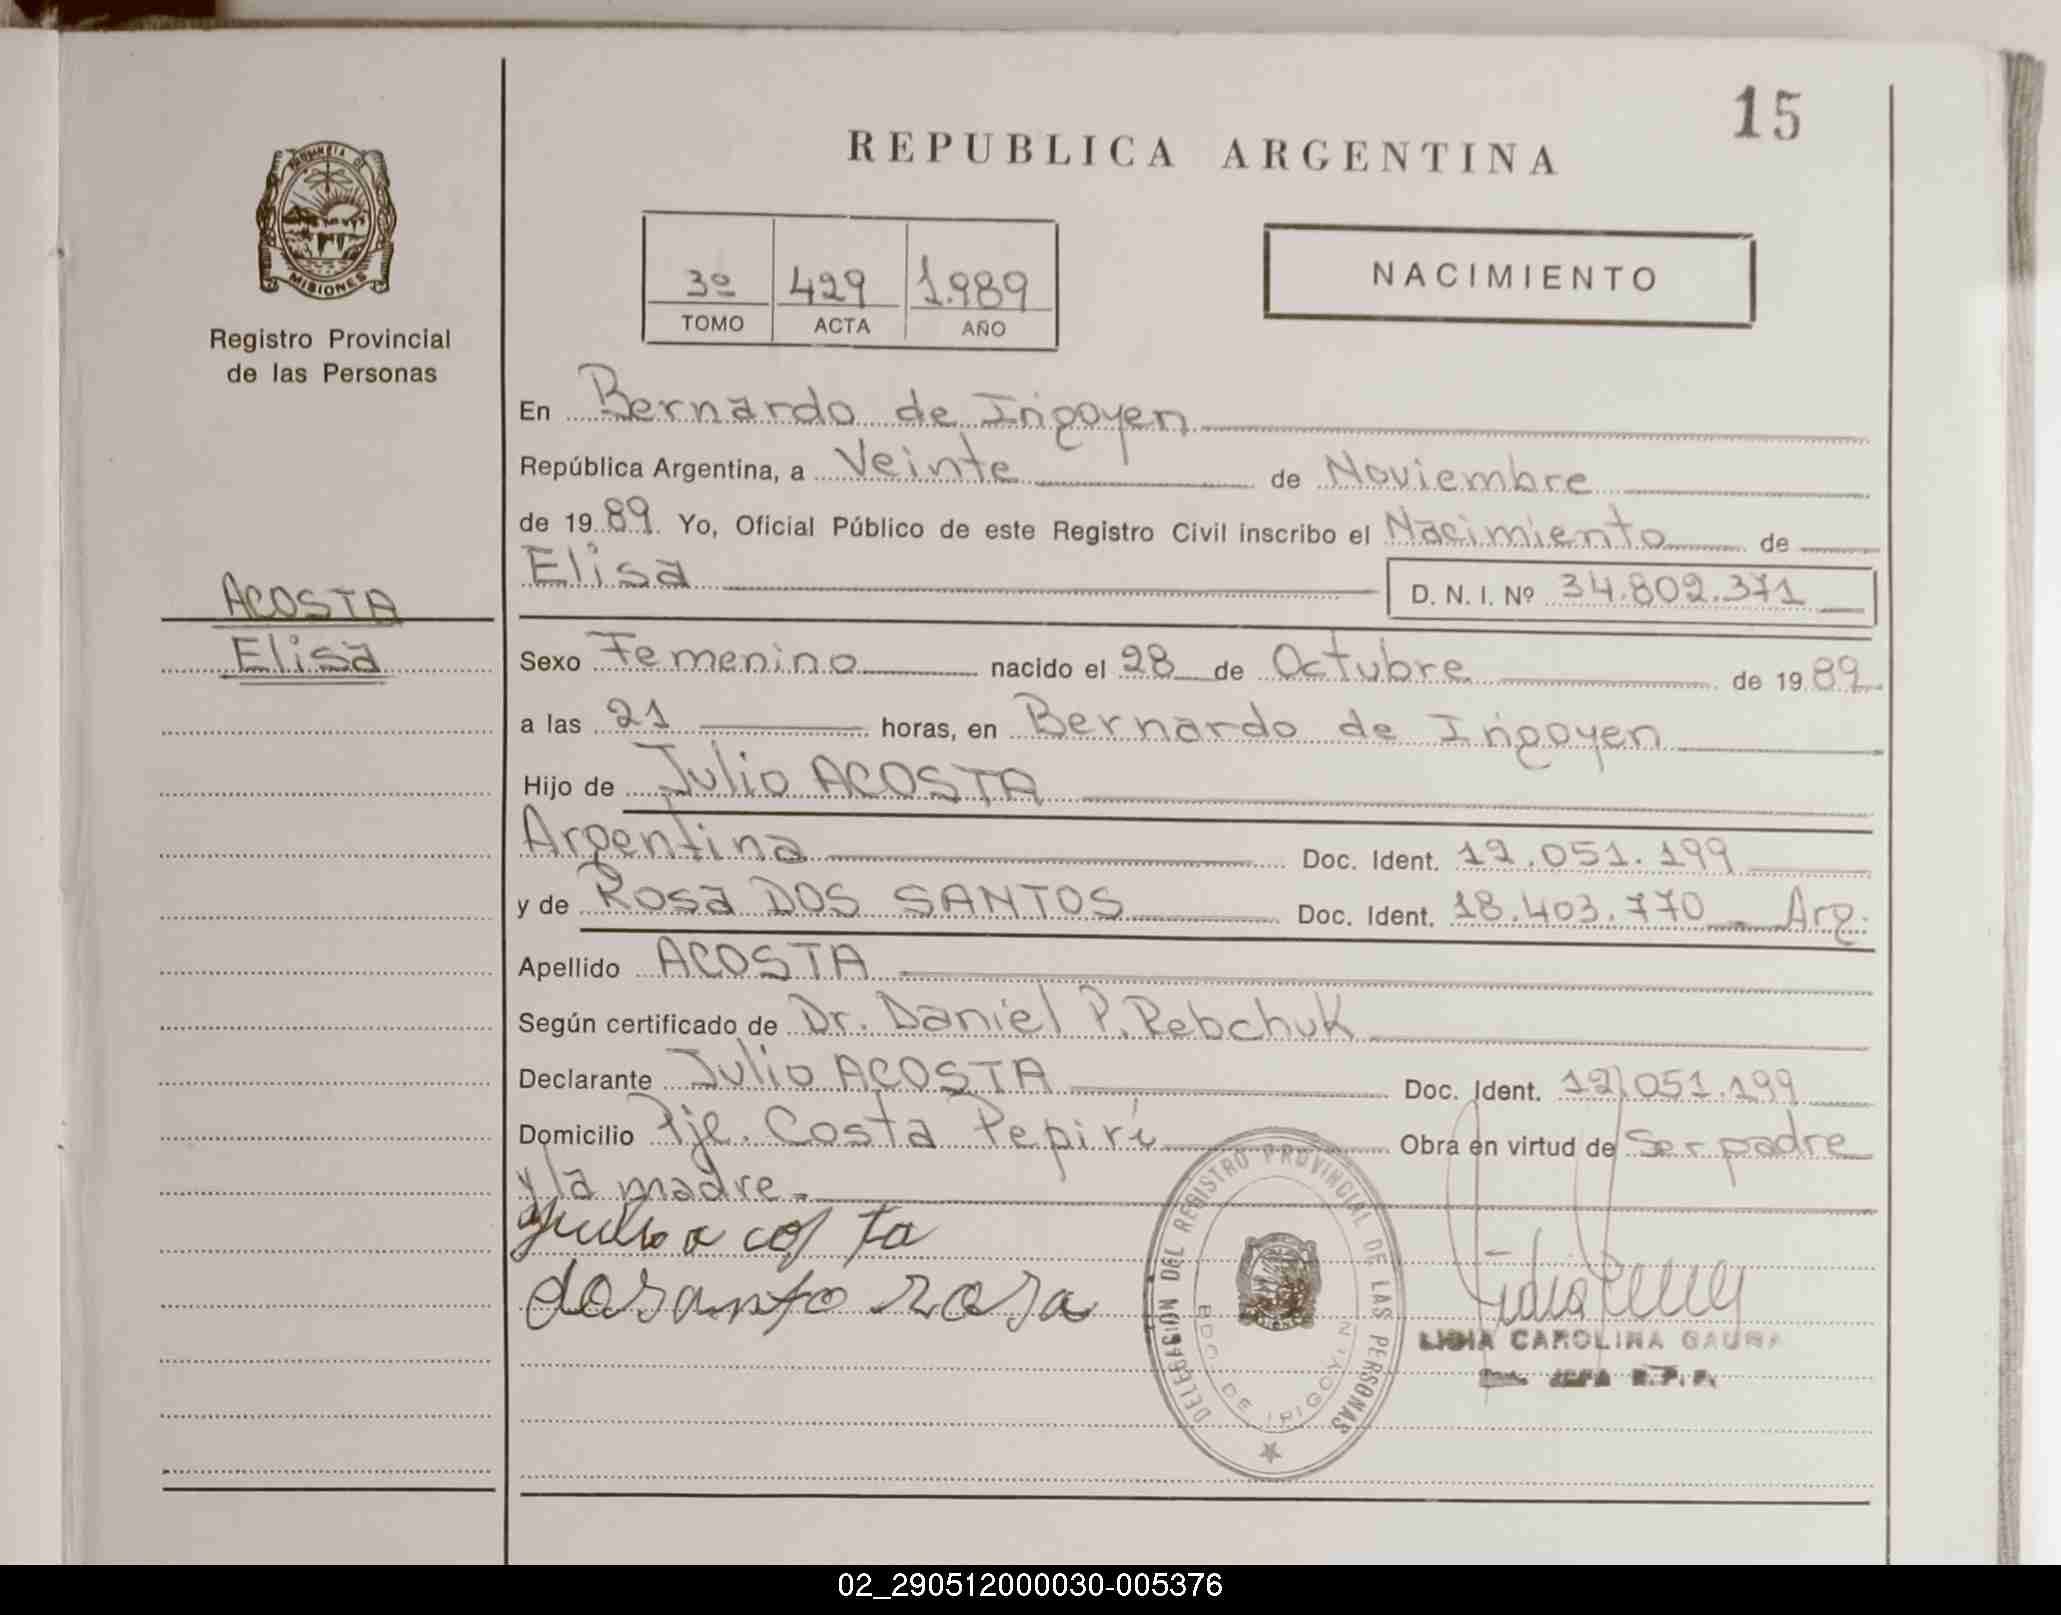 15
REPUBLICA ARGENTINA
PROVINCIA DE
MISIONES
Registro Provincial
de las Personas
3º 429 1.989
TOMO ACTA AÑO
NACIMIENTO
En Bernardo de Irigoyen
República Argentina, a Veinte de Noviembre
de 19 89. Yo, Oficial Público de este Registro Civil inscribo el Nacimiento de
Elisa D. N. I. Nº 34.802.371
ACOSTA
Elisa
Sexo Femenino nacido el 28 de Octubre de 19 89
a las 21 horas, en Bernardo de Irigoyen
Hijo de Julio ACOSTA
Argentina Doc. Ident. 12.051.199
y de Rosa DOS SANTOS Doc. Ident. 18.403.770 Arg.
Apellido ACOSTA
Según certificado de Dr. Daniel P. Rebchuk
Declarante Julio ACOSTA Doc. Ident. 12.051.199
Domicilio Pje. Costa Pepirí Obra en virtud de Ser padre
y la madre.
Julio acosta
dosanto rosa
DELEGACIÓN DEL REGISTRO PROVINCIAL DE LAS PERSONAS
BDO. DE IRIGOYEN
LIDIA CAROLINA
JEFA R.P.P.
02_290512000030-005376